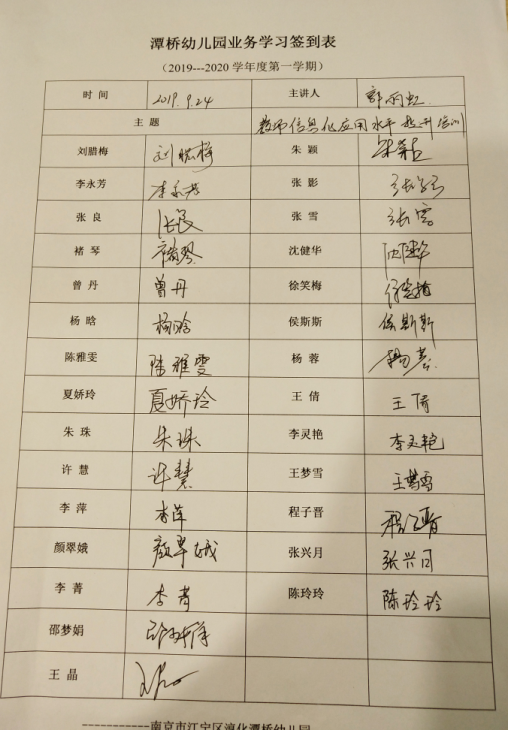 潭桥幼儿园业务学习签到表
（2019---2020 学年度第一学期）
时 间 2019.9.24 主讲人
主 题 教师信息化应用水平提升培训
刘腊梅 刘腊梅 朱 颖 朱颖
李永芳 李永芳 张 影 张影
张 良 张良 张 雪 张雪
褚 琴 褚琴 沈健华 沈健华
曾 丹 曾丹 徐笑梅 徐笑梅
杨 晗 杨晗 侯斯斯 侯斯斯
陈雅雯 陈雅雯 杨 蓉 杨蓉
夏娇玲 夏娇玲 王 倩 王倩
朱 珠 朱珠 李灵艳 李灵艳
许 慧 许慧 王梦雪 王梦雪
李 萍 李萍 程子晋 程子晋
颜翠娥 颜翠娥 张兴月 张兴月
李 菁 李菁 陈玲玲 陈玲玲
邵梦娟 邵梦娟
王 晶
-----------南京市江宁区淳化潭桥幼儿园